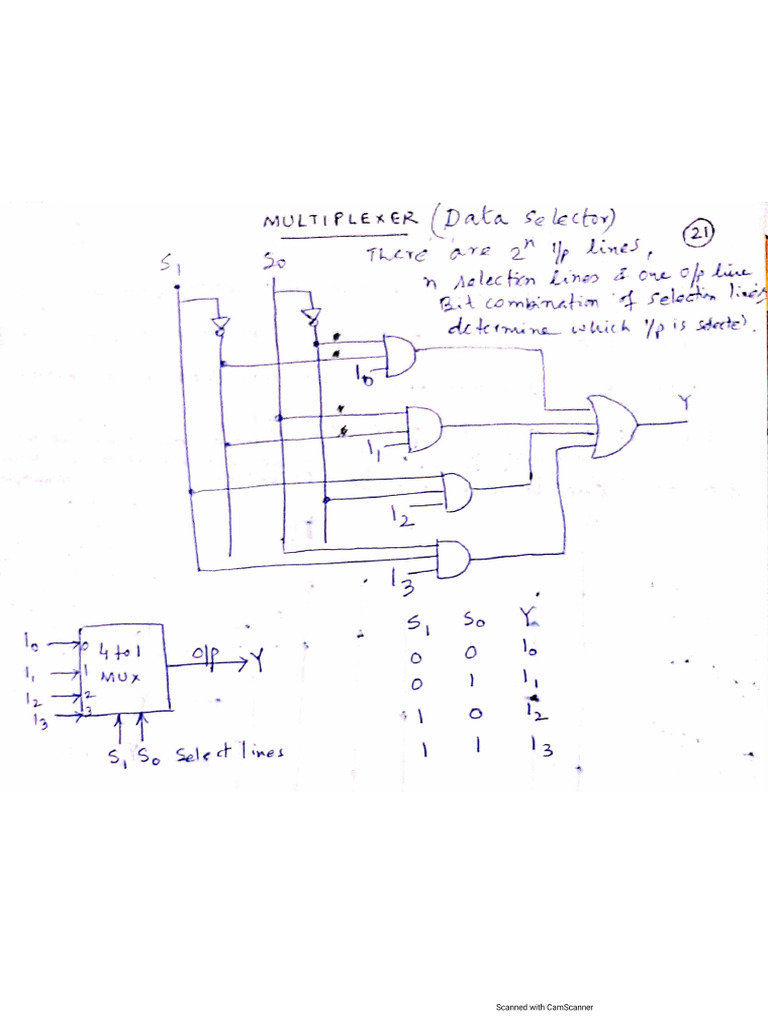 MULTIPLEXER (Data Selector)
21
There are 2ⁿ i/p lines,
n selection lines & one o/p line
Bit combination of selection lines
determine which i/p is selected.
S₁ S₀
I₀
I₁
I₂
I₃
Y
I₀ 0
I₁ 1
I₂ 2
I₃ 3
4 to 1
MUX
o/p Y
S₁ S₀ Select lines
S₁ S₀ Y
0 0 I₀
0 1 I₁
1 0 I₂
1 1 I₃
Scanned with CamScanner